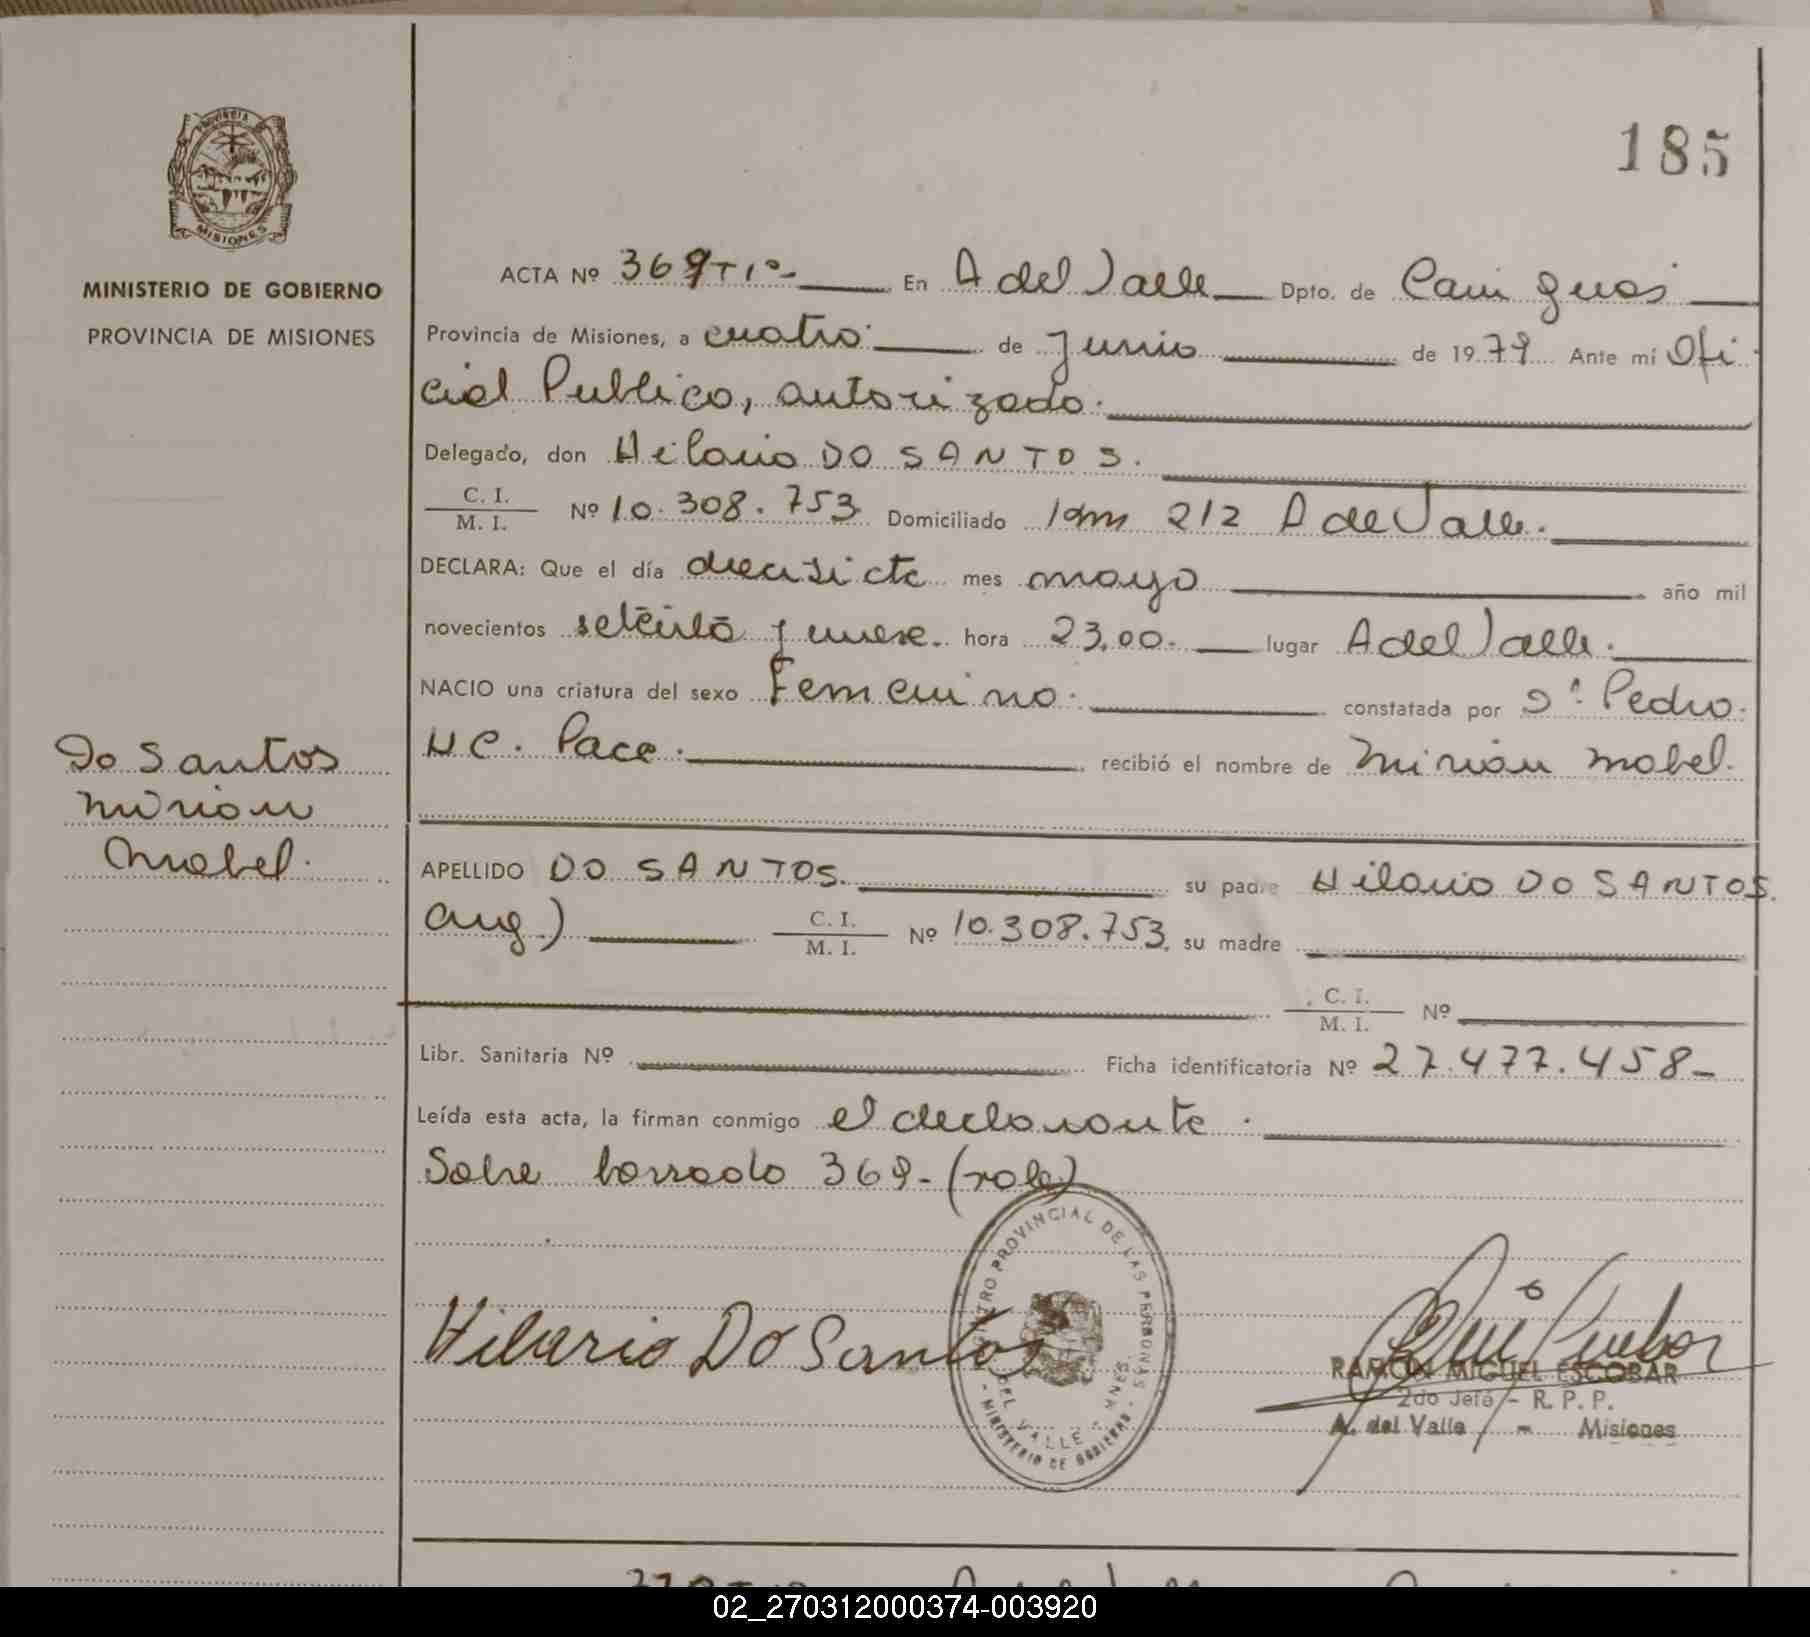 PROVINCIA
MISIONES
MINISTERIO DE GOBIERNO
PROVINCIA DE MISIONES
Do Santos
Mirian
Mabel.
185
ACTA Nº 369 Tº 1º En A del Valle Dpto. de Cainguas
Provincia de Misiones, a cuatro de Junio de 1979 Ante mí Ofi
cial Publico, autorizado.
Delegado, don Hilario DO SANTOS.
C. I.
M. I. Nº 10.308.753 Domiciliado Km 212 A del Valle.
DECLARA: Que el día diecisiete mes mayo año mil
novecientos setenta y nueve. hora 23,00. lugar A del Valle.
NACIO una criatura del sexo Femenino. constatada por Dr. Pedro
H C. Pace. recibió el nombre de Mirian Mabel.
APELLIDO DO SANTOS. su padre Hilario DO SANTOS.
arg.) C. I.
M. I. Nº 10.308.753, su madre
C. I.
M. I. Nº
Libr. Sanitaria Nº Ficha identificatoria Nº 27.477.458-
Leída esta acta, la firman conmigo el declarante.
Sobre borrado 369- (vale)
Hilario Do Santos
PROVINCIAL DE LAS PERSONAS
DEL VALLE
- MINISTERIO DE GOBIERNO -
RAMON MIGUEL ESCOBAR
2do Jefe - R. P. P.
A. del Valle - Misiones
02_270312000374-003920